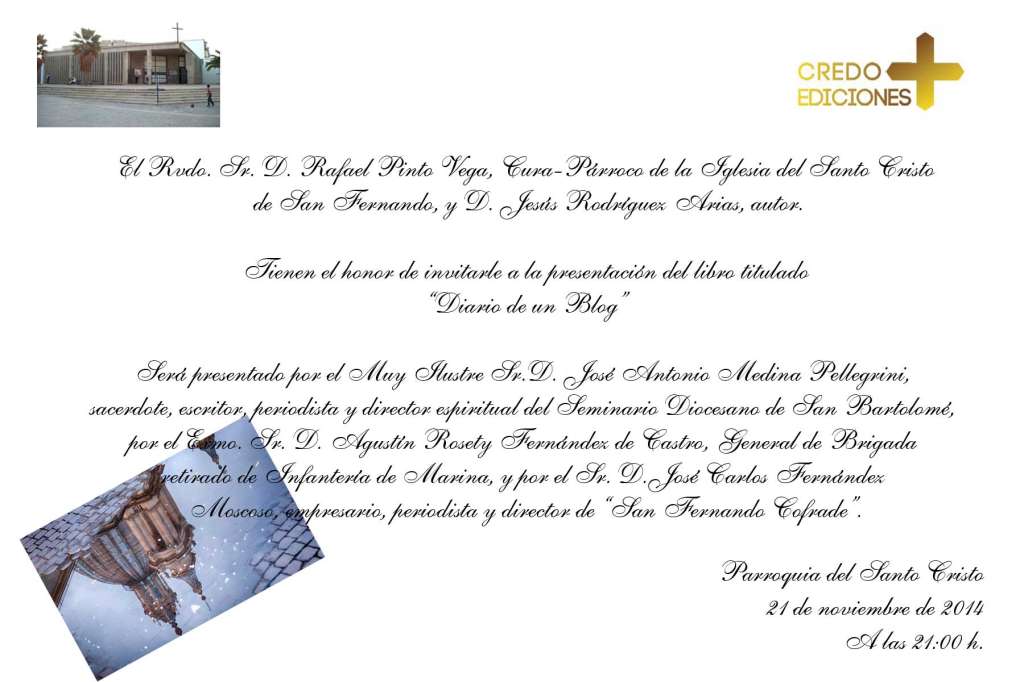 CREDO
EDICIONES
El Rvdo. Sr. D. Rafael Pinto Vega, Cura-Párroco de la Iglesia del Santo Cristo
de San Fernando, y D. Jesús Rodríguez Arias, autor.
Tienen el honor de invitarle a la presentación del libro titulado
“Diario de un Blog”
Será presentado por el Muy Ilustre Sr.D. José Antonio Medina Pellegrini,
sacerdote, escritor, periodista y director espiritual del Seminario Diocesano de San Bartolomé,
por el Exmo. Sr. D. Agustín Rosety Fernández de Castro, General de Brigada
retirado de Infantería de Marina, y por el Sr. D. José Carlos Fernández
Moscoso, empresario, periodista y director de “San Fernando Cofrade”.
Parroquia del Santo Cristo
21 de noviembre de 2014
A las 21:00 h.